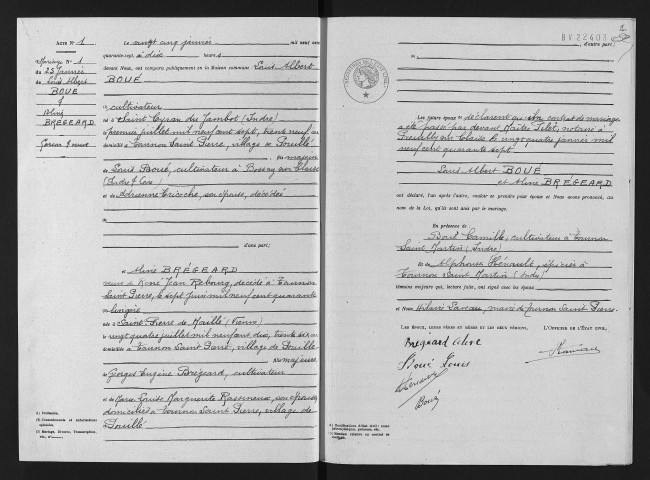 Acte N° 1
Mariage N° 1
du 25 janvier
de Louis Albert
BOUÉ
&
Aline
BRÉGEARD
Le vingt cinq janvier mil neuf cent
quarante sept, à dix heures
devant Nous, ont comparu publiquement en la Maison commune Louis Albert
BOUÉ
cultivateur
né à Saint Cyran du Jambot (Indre)
le premier juillet mil neuf cent sept, trente neuf ans
domicilié à Tournon Saint Pierre, village de Pouillé
majeur
de Louis Boué, cultivateur à Bossay sur Claise
(Indre & Loire)
et de Adrienne Tricoche, son épouse, décédée
d'une part;
et Aline BRÉGEARD
veuve de René Jean Rebourg, décédé à Tournon
Saint Pierre, le sept juin mil neuf cent quarante
née à Saint Pierre de Maillé (Vienne)
le vingt quatre juillet mil neuf cent dix, trente six ans
domiciliée à Tournon Saint Pierre, village de Pouillé
majeure
de Georges Eugène Brégeard, cultivateur
et de Marie Louise Marguerite son épouse,
domiciliés à Tournon Saint Pierre, village de
Pouillé
BV 22603
d'autre part;
Les futurs époux déclarent qu'un contrat de mariage
a été passé par devant Maître notaire à
Preuilly sur Claise le vingt quatre janvier mil
neuf cent quarante sept
Louis Albert BOUÉ
et Aline BRÉGEARD
ont déclaré, l'un après l'autre, vouloir se prendre pour époux et Nous avons prononcé, au
nom de la Loi, qu'ils sont unis par le mariage.
En présence de
Boué Camille, cultivateur à Tournon
Saint Martin (Indre)
et de Alphonse Hénault, épicier à
Tournon Saint Martin (Indre)
témoins majeurs qui, lecture faite, ont signé avec les époux
et Nous Hilaire maire de Tournon Saint Pierre
LES ÉPOUX, LEURS PÈRES ET MÈRES ET LES DEUX TÉMOINS,
L'OFFICIER DE L'ÉTAT CIVIL,
Bregeard Aline
Boué Louis
Boué